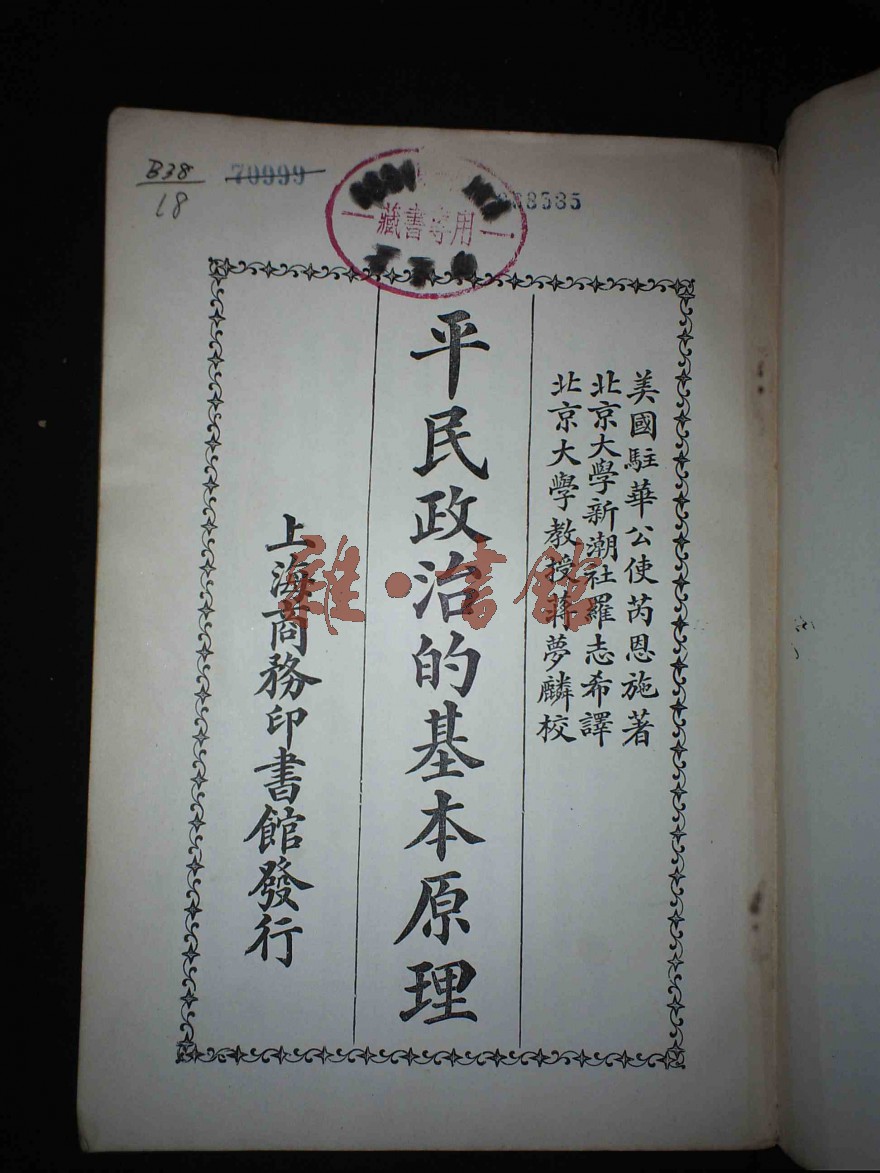 B38
18
70999
38585
藏書專用
美國駐華公使芮恩施著
北京大學新潮社羅志希譯
北京大學教授蔣夢麟校
平民政治的基本原理
上海商務印書館發行
雜·書館